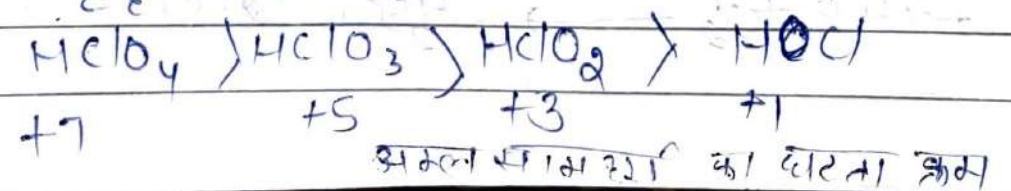 HClO₄ > HClO₃ > HClO₂ > HOCl
+7 +5 +3 +1
अम्ल सामर्थ्य का घटता क्रम